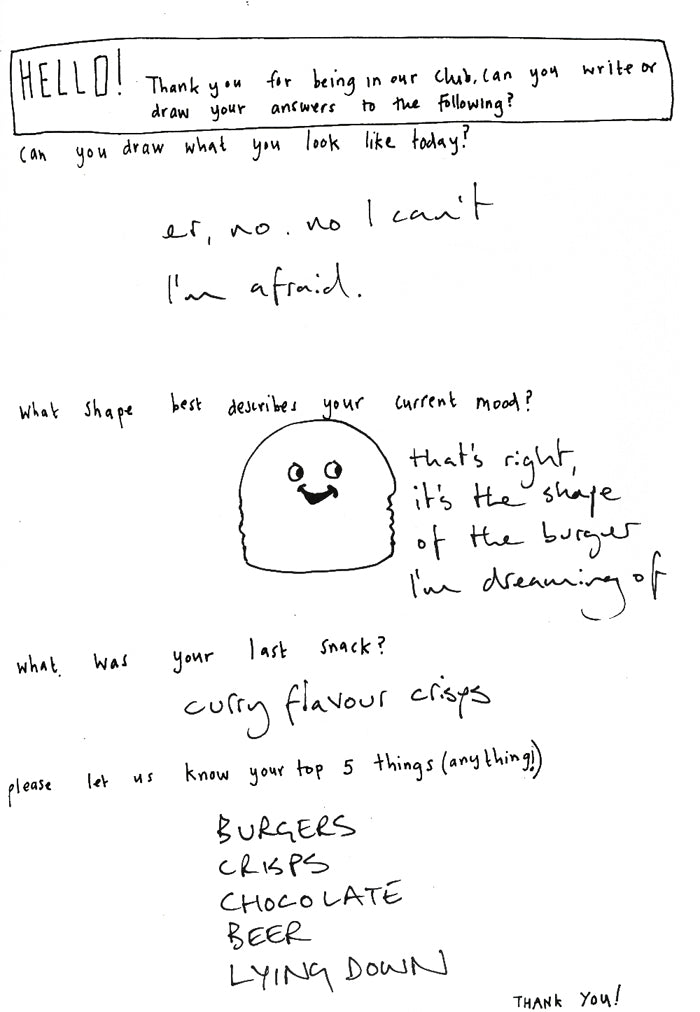 HELLO! Thank you for being in our club. Can you write or
draw your answers to the following?
Can you draw what you look like today?
er, no. no I can't
I'm afraid.
What shape best describes your current mood?
that's right,
it's the shape
of the burger
I'm dreaming of
what was your last snack?
curry flavour crisps
please let us know your top 5 things (anything!)
BURGERS
CRISPS
CHOCOLATE
BEER
LYING DOWN
THANK YOU!